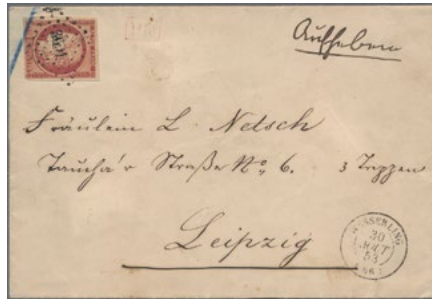 Aufheben
Fräulein L. Netsch
Taucha'r Straße No. 6. 3 Treppen
Leipzig
WESSERLING
30
AOUT
53